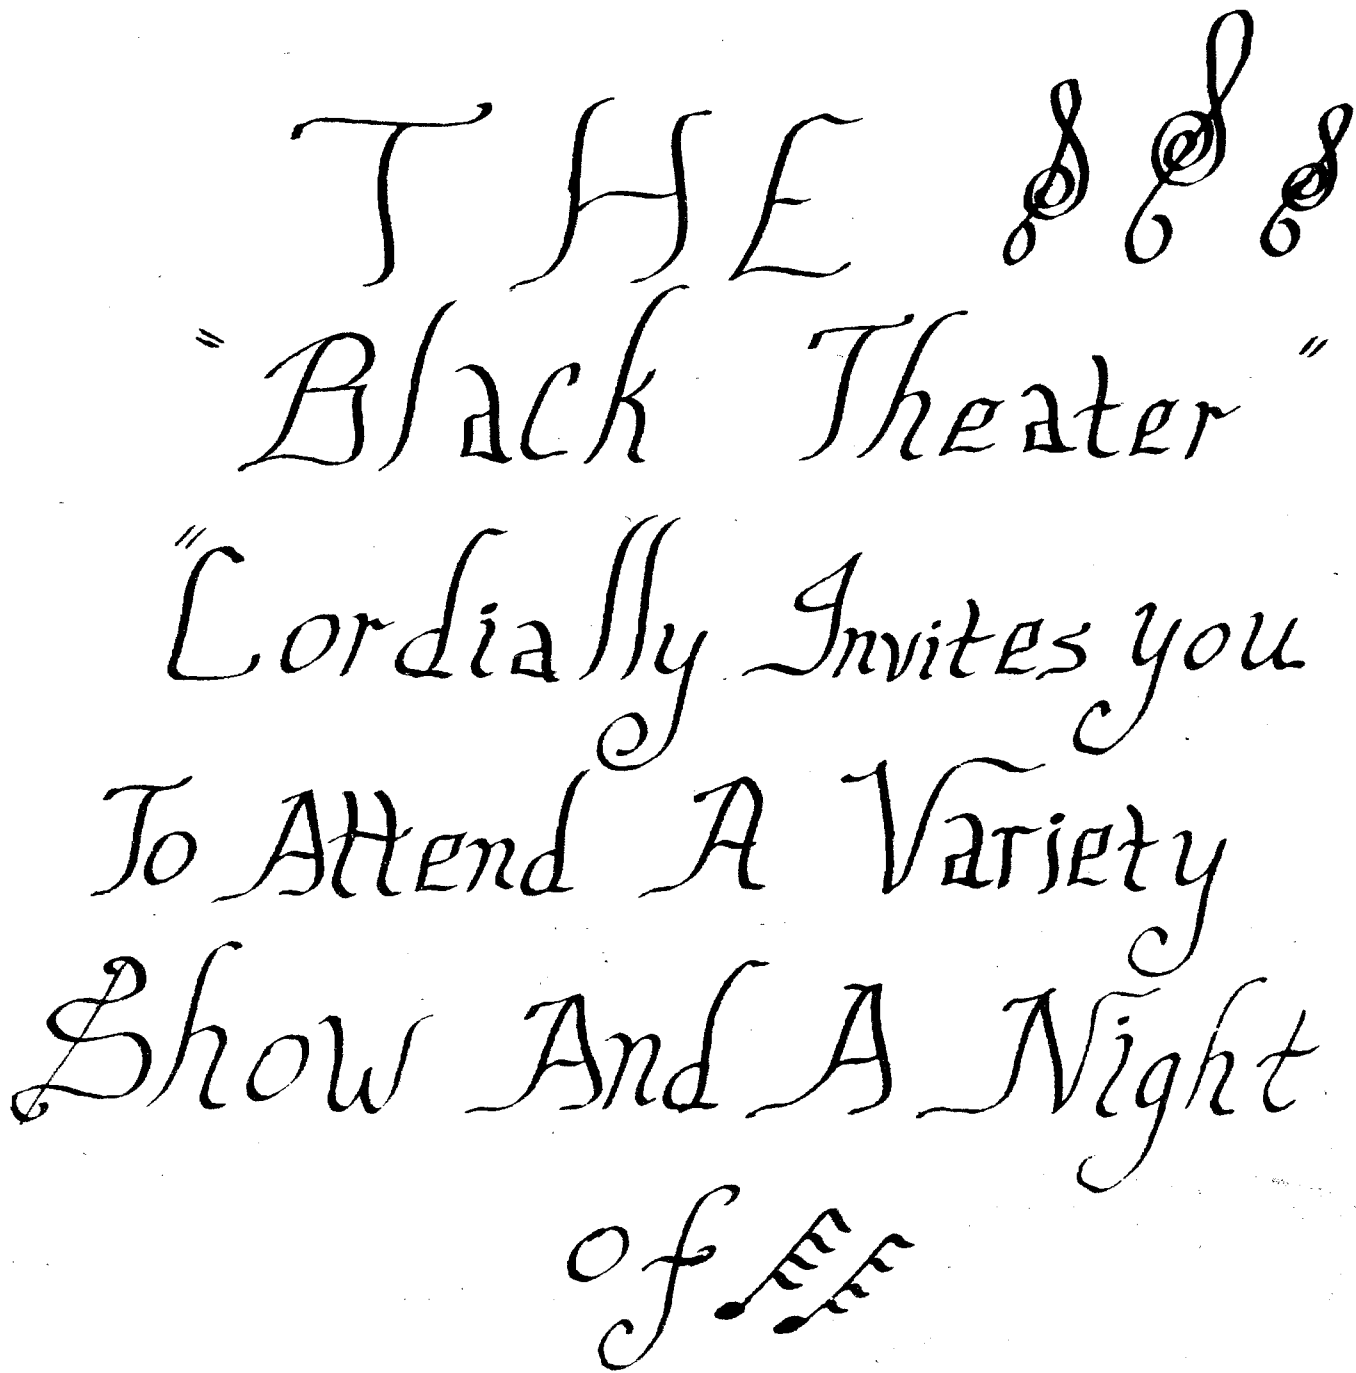 THE
"Black Theater"
"Cordially Invites you
To Attend A Variety
Show And A Night
of